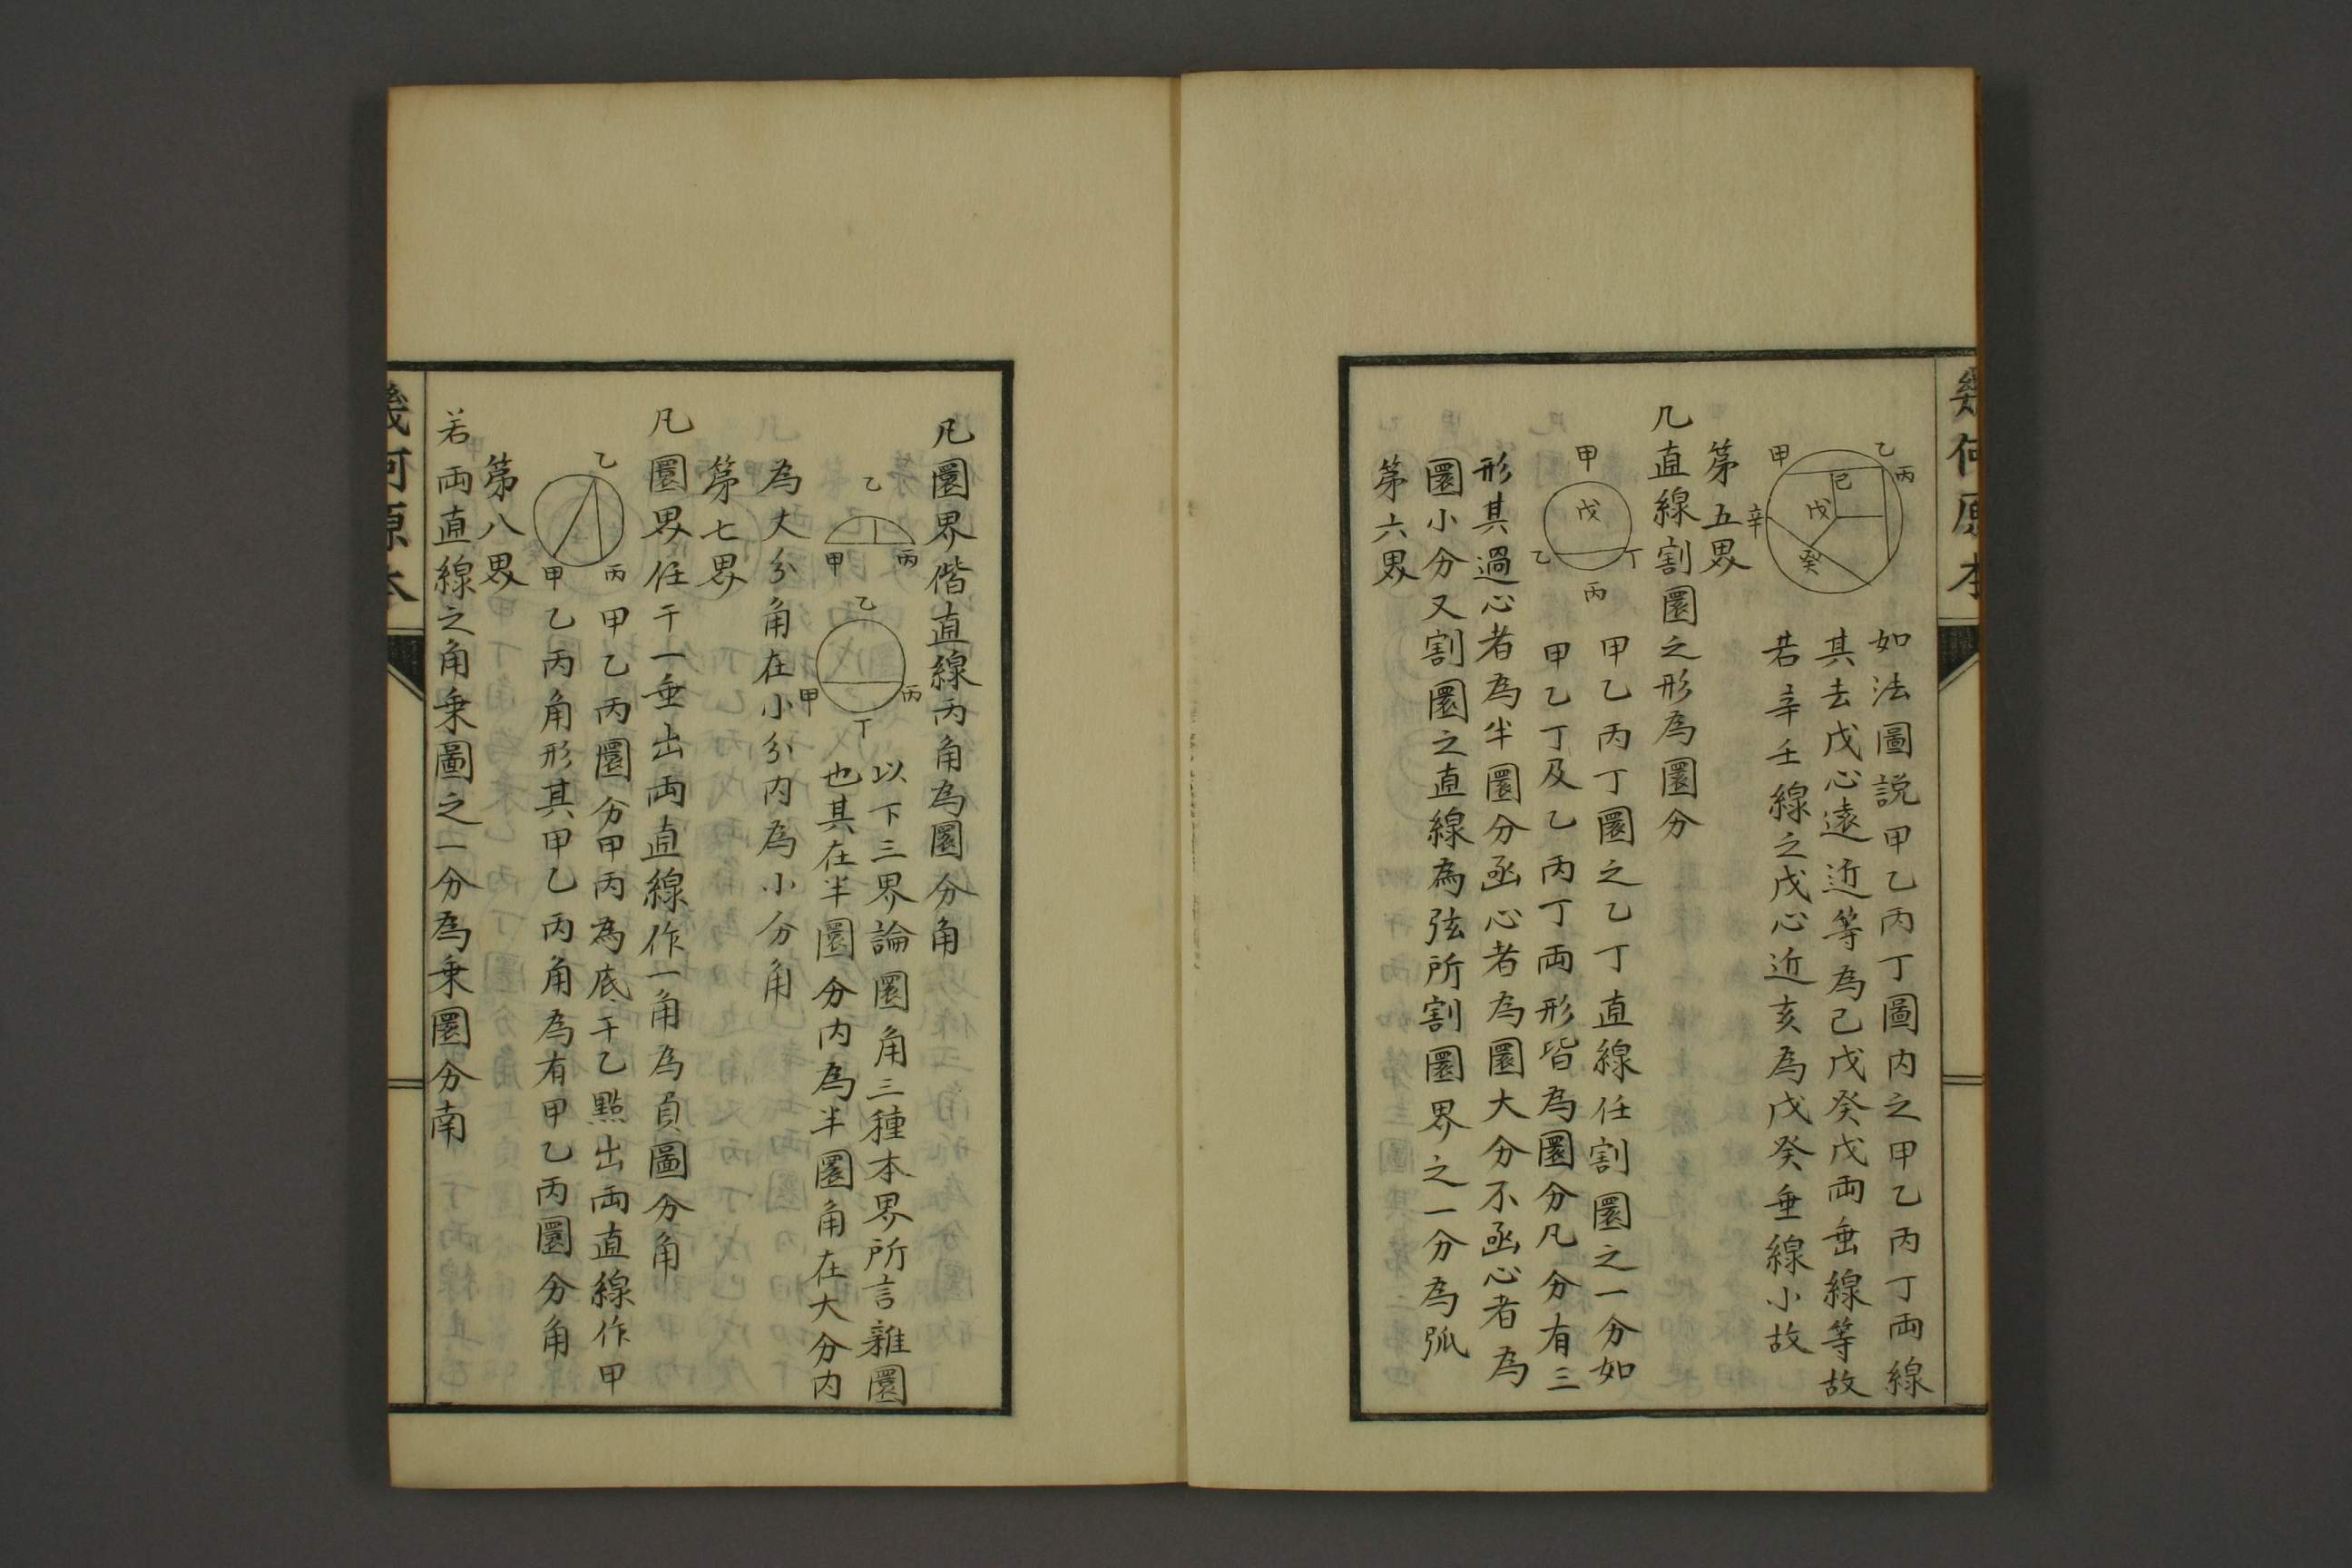 幾何原本
乙
丙
甲
己
戊
辛
癸
如法圖説甲乙丙丁圖内之甲乙丙丁両線
其去戊心遠近等為己戊癸戊両垂線等故
若辛壬線之戊心近亥為戊癸垂線小故
第五界
凡直線割圜之形為圜分
甲
戊
乙
丁
丙
甲乙丙丁圜之乙丁直線任割圜之一分如
甲乙丁及乙丙丁両形皆為圜分凡分有三
形其過心者為半圜分函心者為圜大分不函心者為
圜小分又割圜之直線為弦所割圜界之一分為弧
第六界
凡圜界偕直線丙角為圜分角
乙
甲
丙
乙
甲
丙
丁
以下三界論圜角三種本界所言雜圜
也其在半圜分内為半圜角在大分内
為大分角在小分内為小分角
第七界
凡圜界任干一垂出両直線作一角為負圖分角
乙
甲
丙
甲乙丙圜分甲丙為底干乙點出両直線作甲
乙丙角形其甲乙丙角為有甲乙丙圜分角
第八界
若両直線之角乗圖之一分為乗圜分南
幾何原本